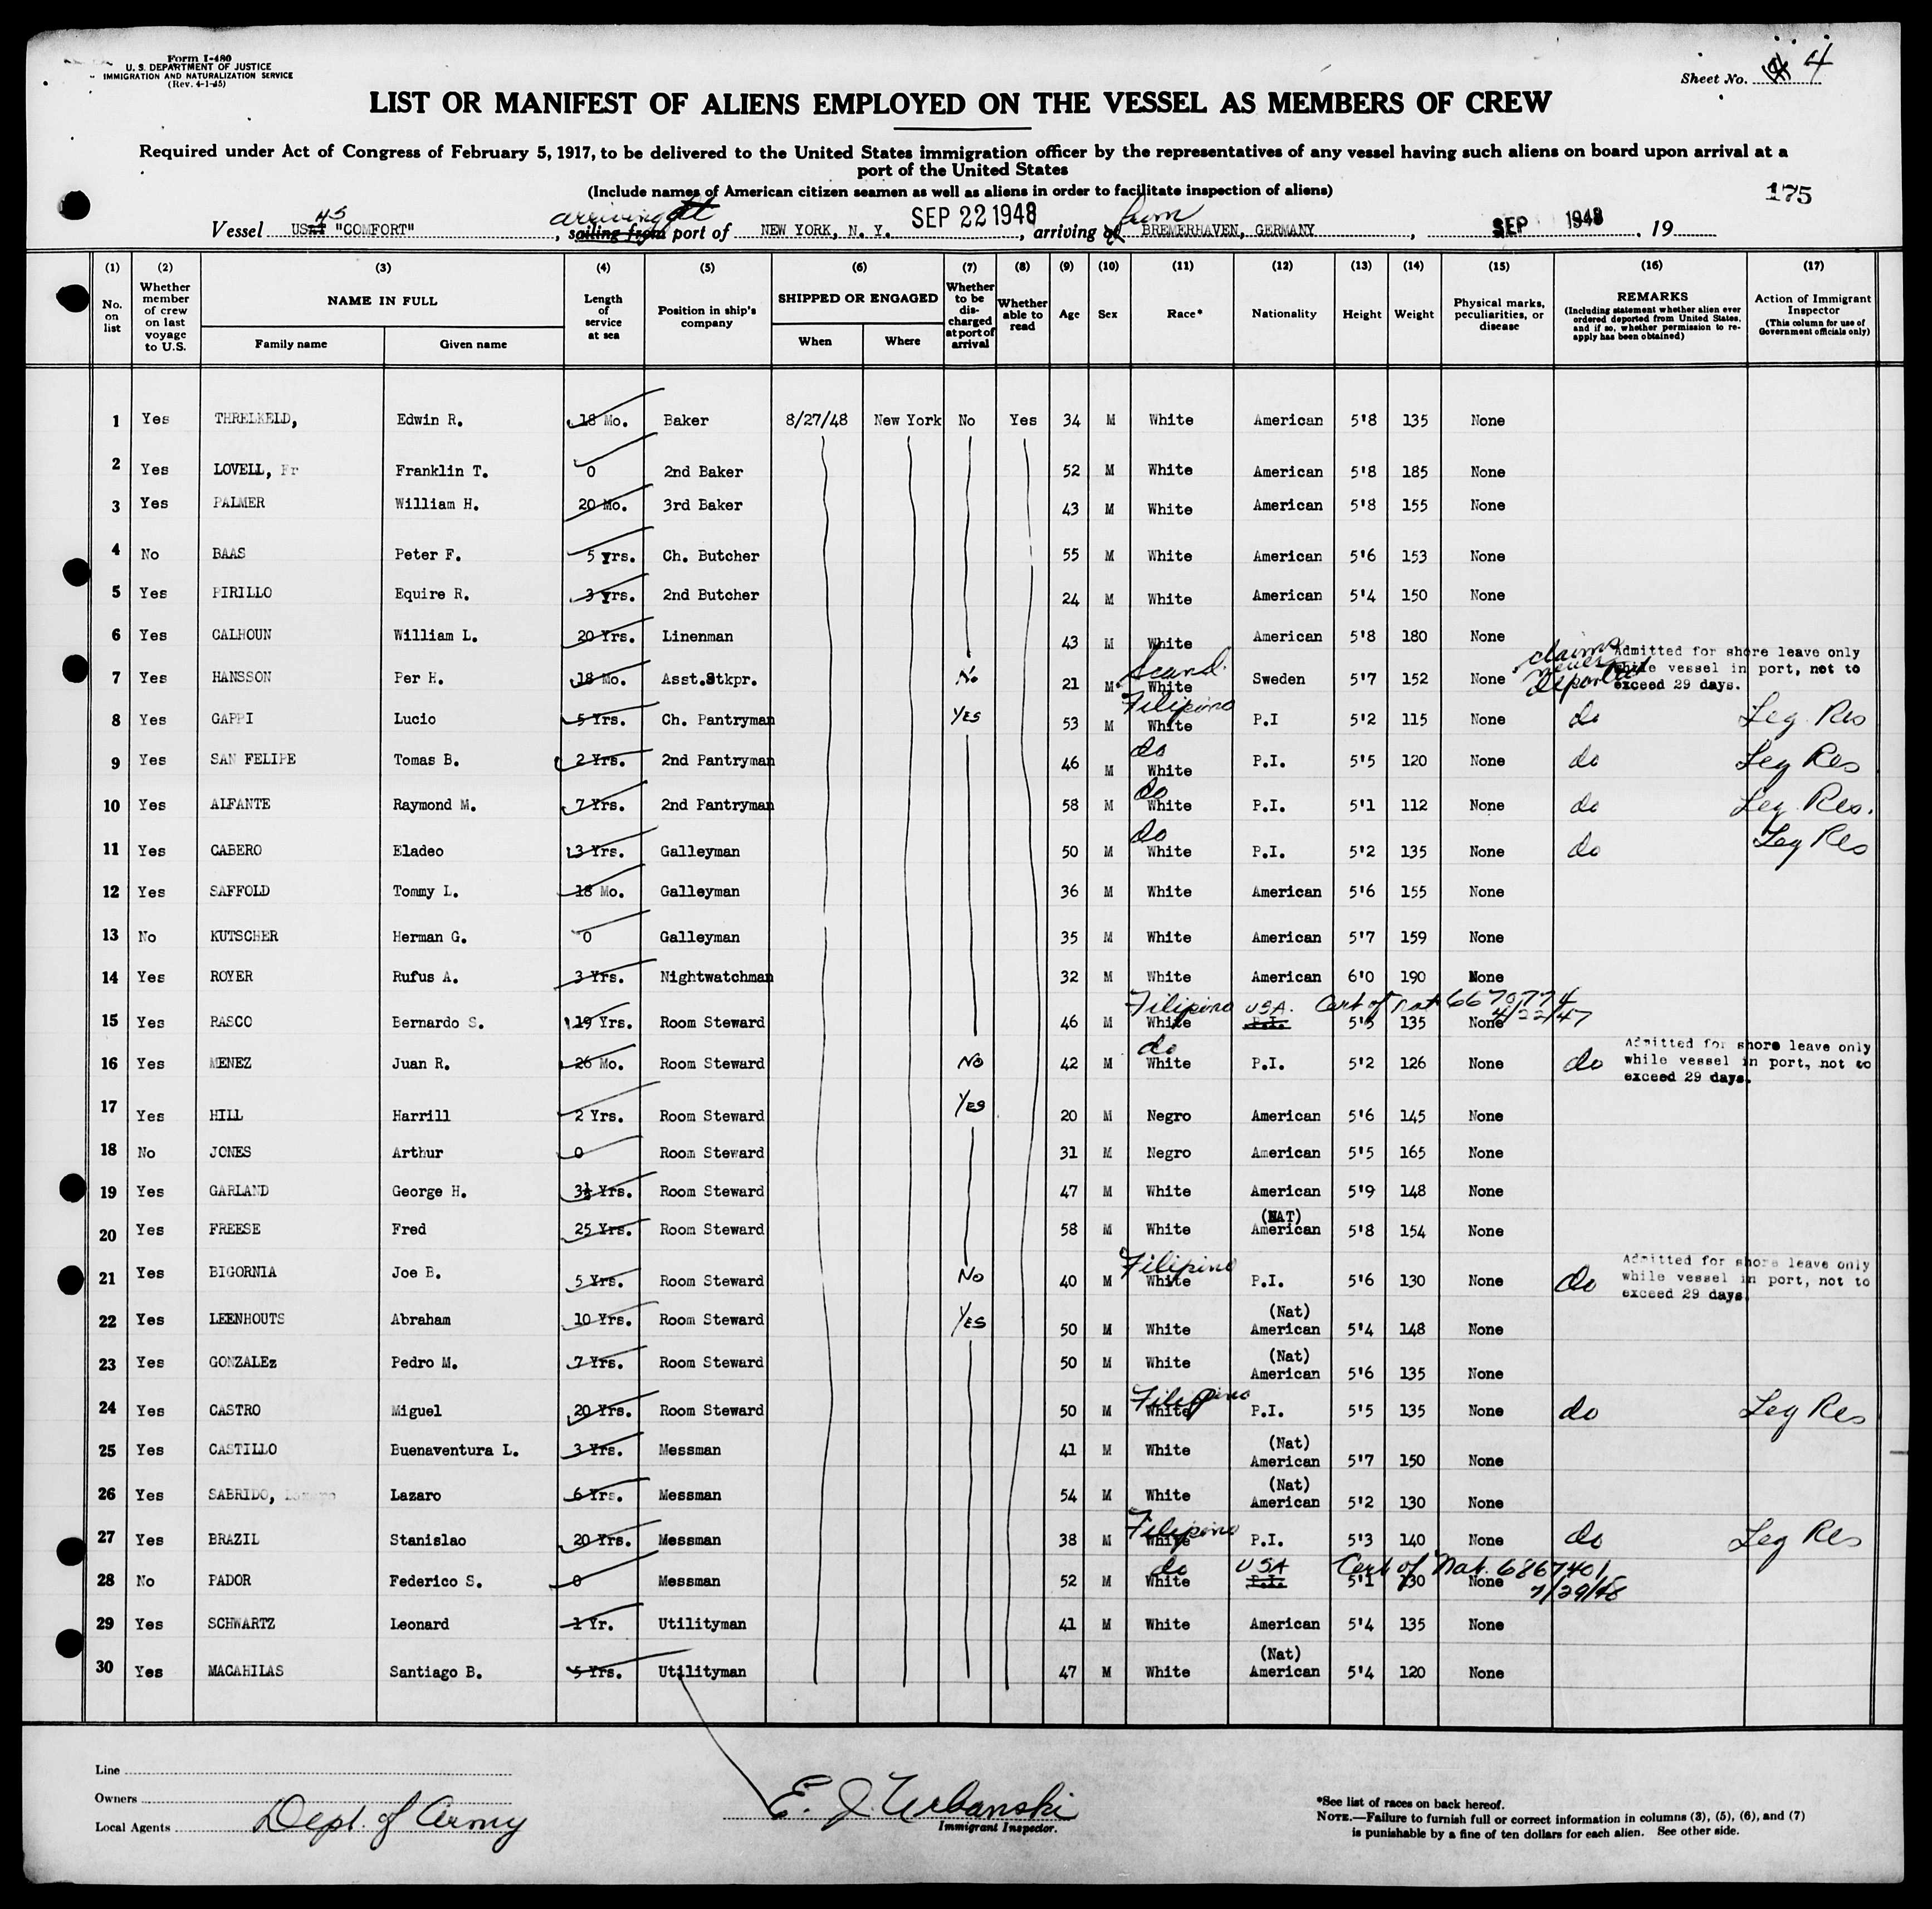 Form I-480
U. S. DEPARTMENT OF JUSTICE
IMMIGRATION AND NATURALIZATION SERVICE
(Rev. 4-1-45)
Sheet No. 4
LIST OR MANIFEST OF ALIENS EMPLOYED ON THE VESSEL AS MEMBERS OF CREW
Required under Act of Congress of February 5, 1917, to be delivered to the United States immigration officer by the representatives of any vessel having such aliens on board upon arrival at a
port of the United States
(Include names of American citizen seamen as well as aliens in order to facilitate inspection of aliens)
175
Vessel USAT HS "COMFORT", sailing from arriving at port of NEW YORK, N. Y. SEP 22 1948, arriving at from BREMERHAVEN, GERMANY, SEP 1948, 19
(1) (2) (3) (4) (5) (6) (7) (8) (9) (10) (11) (12) (13) (14) (15) (16) (17)
No. on list
Whether member of crew on last voyage to U.S.
NAME IN FULL
Family name Given name
Length of service at sea
Position in ship's company
SHIPPED OR ENGAGED
When Where
Whether to be discharged at port of arrival
Whether able to read
Age Sex Race* Nationality Height Weight
Physical marks, peculiarities, or disease
REMARKS
(Including statement whether alien ever ordered deported from United States, and if so, whether permission to reapply has been obtained)
Action of Immigrant Inspector
(This column for use of Government officials only)
1 Yes THRELKELD, Edwin R. 18 Mo. Baker 8/27/48 New York No Yes 34 M White American 5'8 135 None
2 Yes LOVELL, Fr Franklin T. 0 2nd Baker 52 M White American 5'8 185 None
3 Yes PALMER William H. 20 Mo. 3rd Baker 43 M White American 5'8 155 None
4 No BAAS Peter F. 5 yrs. Ch. Butcher 55 M White American 5'6 153 None
5 Yes PIRILLO Equire R. 3 yrs. 2nd Butcher 24 M White American 5'4 150 None
6 Yes CALHOUN William L. 20 Yrs. Linenman 43 M White American 5'8 180 None
7 Yes HANSSON Per H. 18 Mo. Asst.Stkpr. No 21 M White Scand. Sweden 5'7 152 None claims never deported Admitted for shore leave only while vessel in port, not to exceed 29 days.
8 Yes GAPPI Lucio 5 Yrs. Ch. Pantryman YES 53 M Filipino White P.I 5'2 115 None do Leg. Res
9 Yes SAN FELIPE Tomas B. 2 Yrs. 2nd Pantryman 46 M do White P.I. 5'5 120 None do Leg Res
10 Yes ALFANTE Raymond M. 7 Yrs. 2nd Pantryman 58 M do White P.I. 5'1 112 None do Leg. Res.
11 Yes CABERO Eladeo 3 Yrs. Galleyman 50 M do White P.I. 5'2 135 None do Leg Res
12 Yes SAFFOLD Tommy L. 18 Mo. Galleyman 36 M White American 5'6 155 None
13 No KUTSCHER Herman G. 0 Galleyman 35 M White American 5'7 159 None
14 Yes ROYER Rufus A. 3 Yrs. Nightwatchman 32 M White American 6'0 190 None
15 Yes RASCO Bernardo S. 19 Yrs. Room Steward 46 M Filipino White USA. P.I. 5'5 135 None Cert of Nat 6670774 4/22/47
16 Yes MENEZ Juan R. 26 Mo. Room Steward No 42 M do White P.I. 5'2 126 None do Admitted for shore leave only while vessel in port, not to exceed 29 days.
17 Yes HILL Harrill 2 Yrs. Room Steward YES 20 M Negro American 5'6 145 None
18 No JONES Arthur 0 Room Steward 31 M Negro American 5'5 165 None
19 Yes GARLAND George H. 3½ Yrs. Room Steward 47 M White American 5'9 148 None
20 Yes FREESE Fred 25 Yrs. Room Steward 58 M White (NAT) American 5'8 154 None
21 Yes BIGORNIA Joe B. 5 Yrs. Room Steward No 40 M Filipino White P.I. 5'6 130 None do Admitted for shore leave only while vessel in port, not to exceed 29 days.
22 Yes LEENHOUTS Abraham 10 Yrs. Room Steward YES 50 M White (Nat) American 5'4 148 None
23 Yes GONZALEz Pedro M. 7 Yrs. Room Steward 50 M White (Nat) American 5'6 135 None
24 Yes CASTRO Miguel 20 Yrs. Room Steward 50 M Filipino White P.I. 5'5 135 None do Leg Res
25 Yes CASTILLO Buenaventura L. 3 Yrs. Messman 41 M White (Nat) American 5'7 150 None
26 Yes SABRIDO, Lazaro 6 Yrs. Messman 54 M White (Nat) American 5'2 130 None
27 Yes BRAZIL Stanislao 20 Yrs. Messman 38 M Filipino White P.I. 5'3 140 None do Leg Res
28 No PADOR Federico S. 0 Messman 52 M do White USA P.I. 5'1 130 None Cert of Nat. 6867401 7/29/48
29 Yes SCHWARTZ Leonard 1 Yr. Utilityman 41 M White American 5'4 135 None
30 Yes MACAHILAS Santiago B. 5 Yrs. Utilityman 47 M White (Nat) American 5'4 120 None
Line
Owners
Local Agents Dept. of Army
E. J. Urbanski
Immigrant Inspector.
*See list of races on back hereof.
NOTE.—Failure to furnish full or correct information in columns (3), (5), (6), and (7)
is punishable by a fine of ten dollars for each alien. See other side.